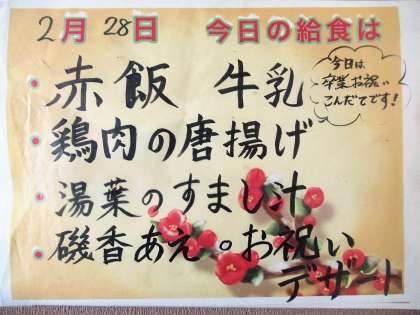 2月 28日 今日の給食は
今日は
卒業お祝い
こんだてです!
・赤飯 牛乳
・鶏肉の唐揚げ
・湯葉のすまし汁
・磯香あえ。お祝い
デザート